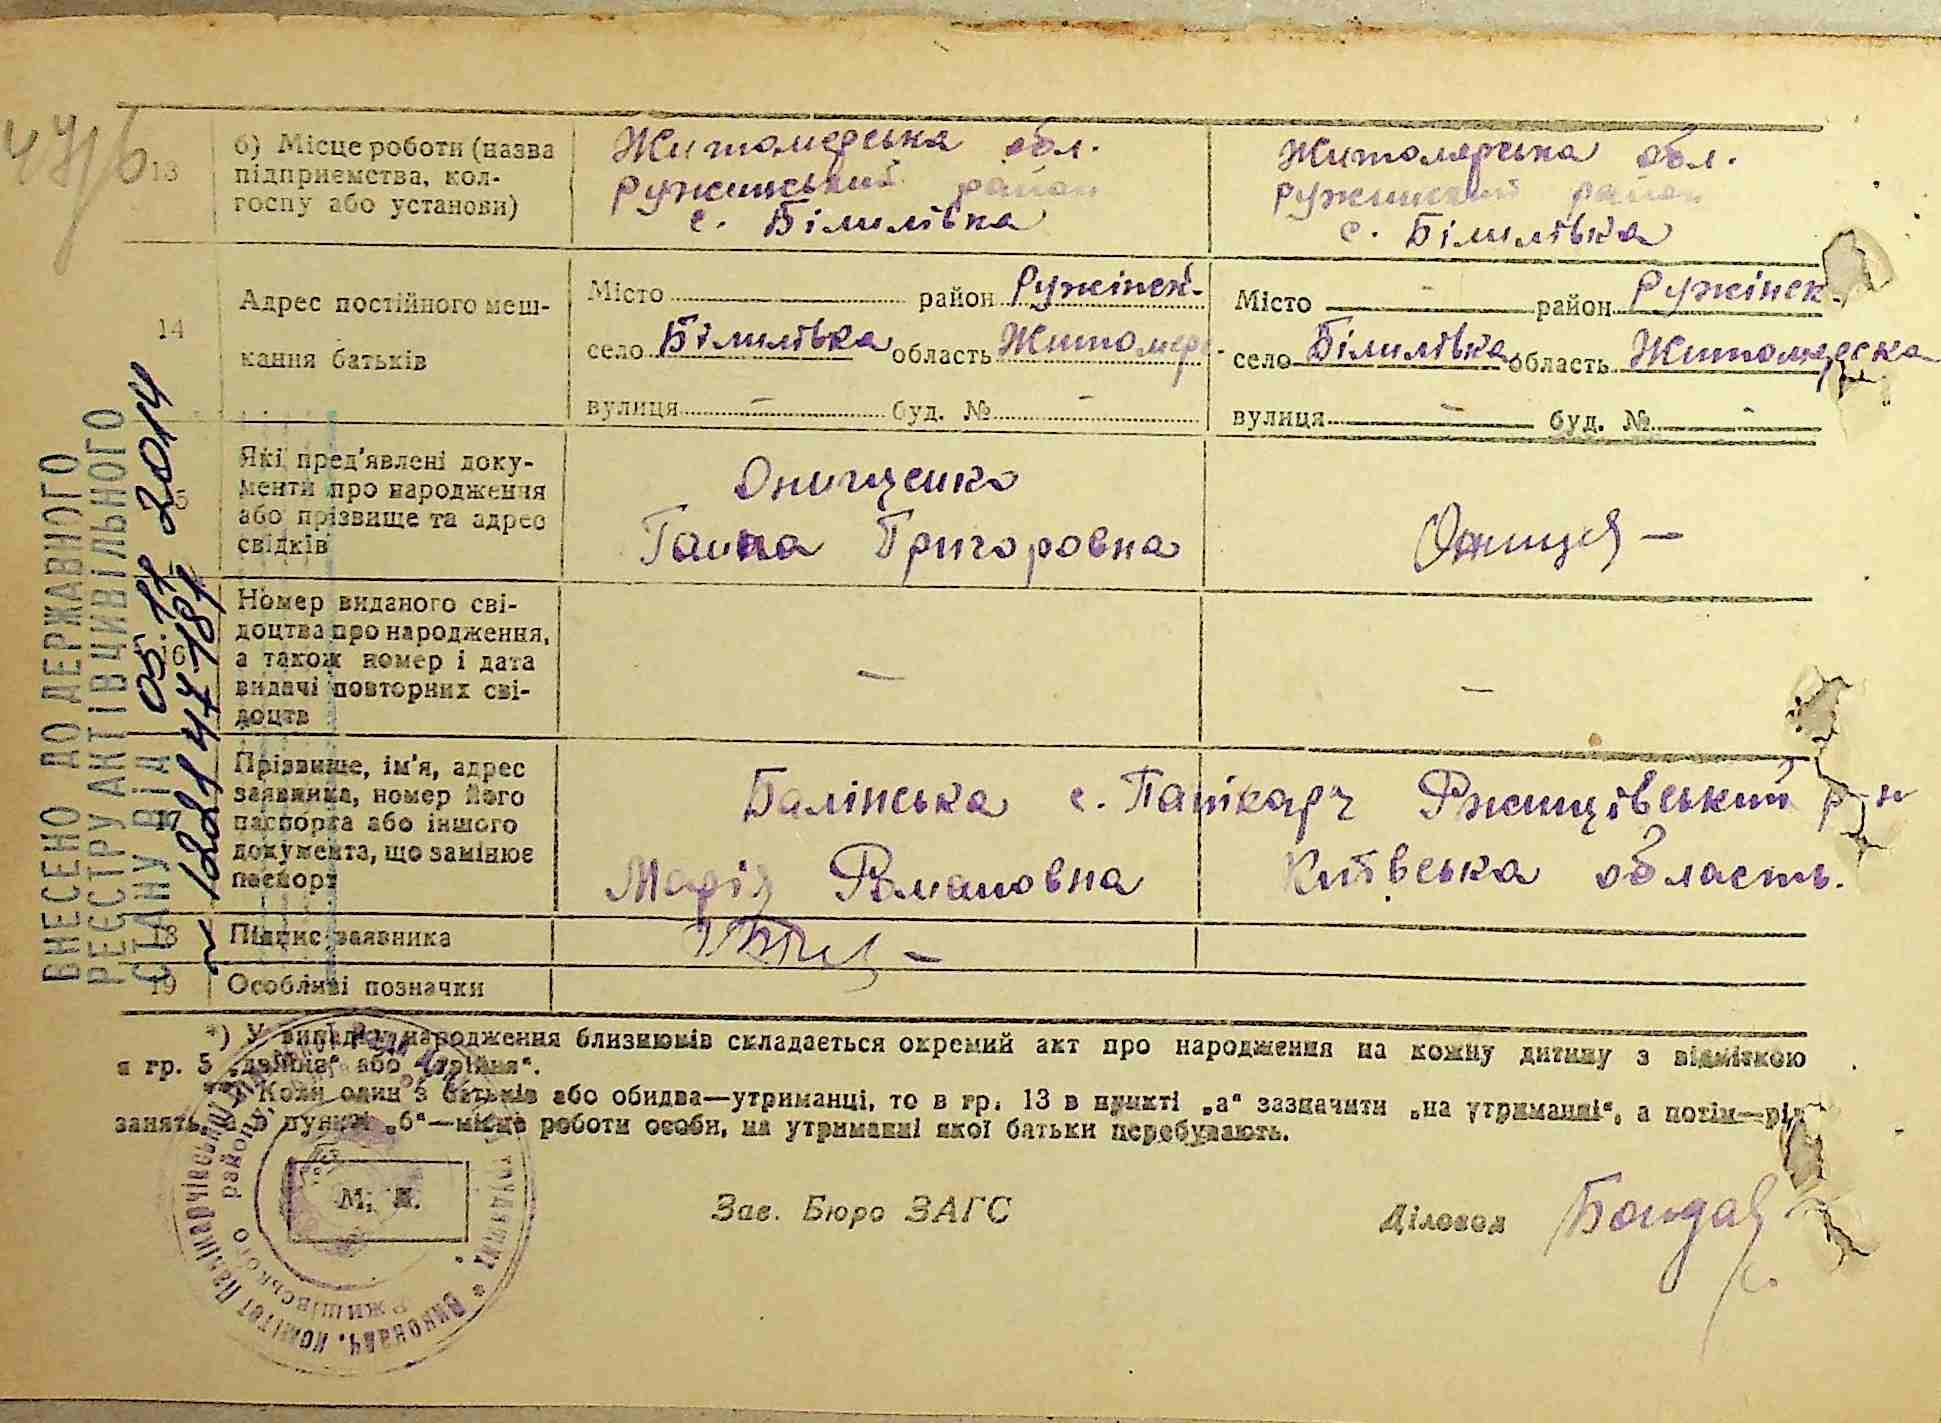 13
б) Місце роботи (назва
підприємства, кол-
госпу або установи)
Житомерська обл.
Ружинський район
с. Білилівка
Житомярська обл.
Ружинский район
с. Білилівка
14
Адрес постійного меш-
кання батьків
Місто район Ружінск-
село Білилівка область Житомер-
вулиця — буд. № —
Місто — район Ружінск-
село Білилівка область Житомерска
вулиця — буд. № —
15
Які пред'явлені доку-
менти про народження
або прізвище та адрес
свідків
Онищенко
Ганна Григоровна
Онище —
16
Номер виданого сві-
доцтва про народження,
а також номер і дата
видачі повторних сві-
доцтв
—
—
17
Прізвище, ім'я, адрес
заявника, номер його
паспорта або іншого
документа, що замінює
паспорт
Балінська с. Панікарч Ржищівський р-н
Марія Романовна Київська область.
18
Підпис заявника
19
Особливі позначки
*) У випадку народження близнюків складається окремий акт про народження на кожну дитину з відміткою
в гр. 5 „двійня“ або „трійня“.
Коли один з батьків або обидва—утриманці, то в гр. 13 в пункті „а“ зазначити „на утриманні“, а потім—рід
занять, а в пункті „б“—місце роботи особи, на утриманні якої батьки перебувають.
М. П.
Зав. Бюро ЗАГС
Діловод
Бондар
ВНЕСЕНО ДО ДЕРЖАВНОГО
РЕЄСТРУ АКТІВ ЦИВІЛЬНОГО
СТАНУ ВІД 05.11 2014
трудящих * Виконавч. комітет
Ржищівського району